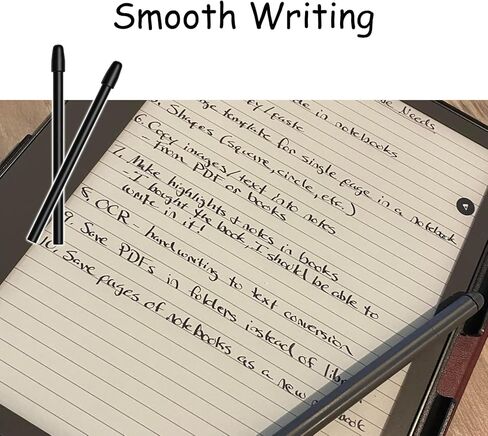 Smooth Writing
Needs
in notebooks
copy/paste
template for single page in a notebook
5. Shapes (square, circle, etc.)
6. Copy images/text into notes
from PDF or books
7. Make highlights & notes in books
- I bought the book, I should be able to
write in it!
8. OCR - handwriting to text conversion
9. Save PDFs in folders instead of
10. Save pages of notebooks as a new